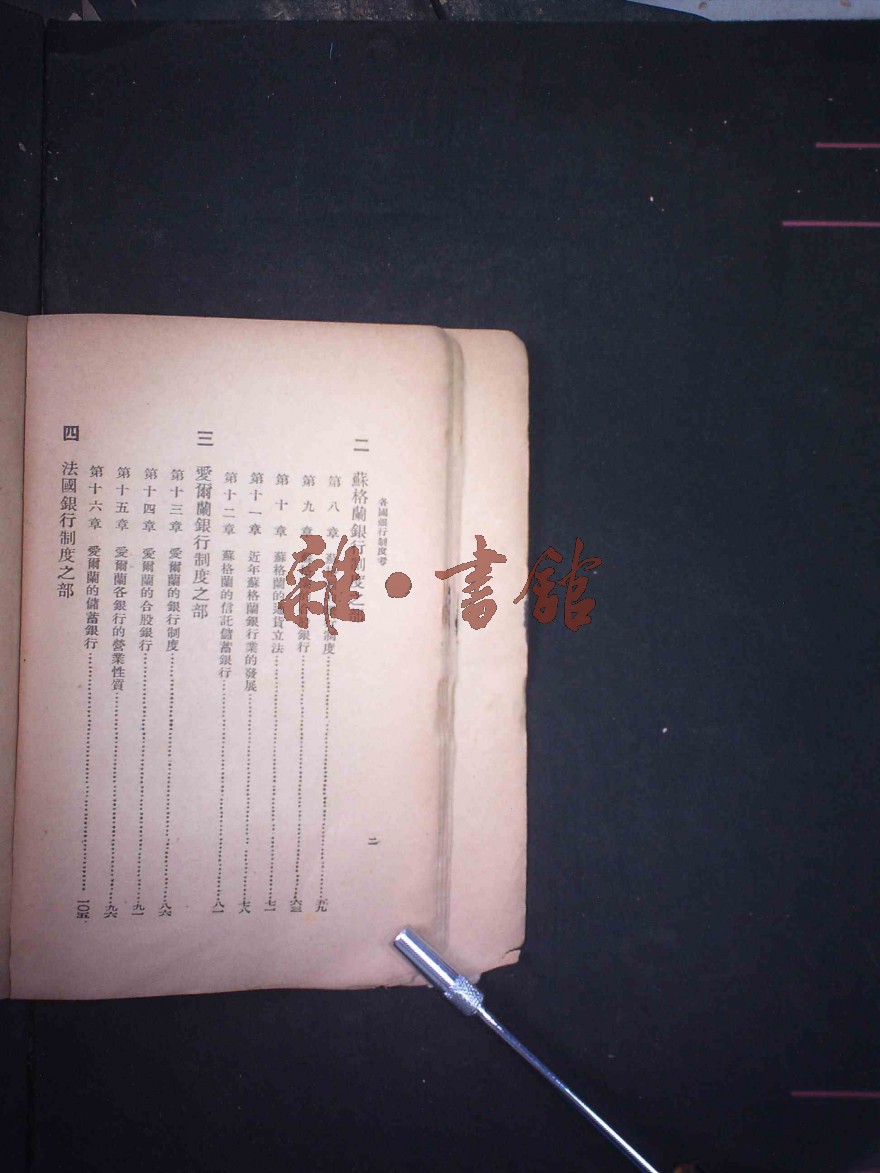 各國銀行制度考
二
二 蘇格蘭銀行制度之部
第八章 蘇 制度……五九
第九章 銀行……六三
第十章 蘇格蘭的通貨立法……七一
第十一章 近年蘇格蘭銀行業的發展……七八
第十二章 蘇格蘭的信託儲蓄銀行……八一
三 愛爾蘭銀行制度之部
第十三章 愛爾蘭的銀行制度……八六
第十四章 愛爾蘭的合股銀行……九一
第十五章 愛爾蘭各銀行的營業性質……九六
第十六章 愛爾蘭的儲蓄銀行……一〇五
四 法國銀行制度之部
雜·書館